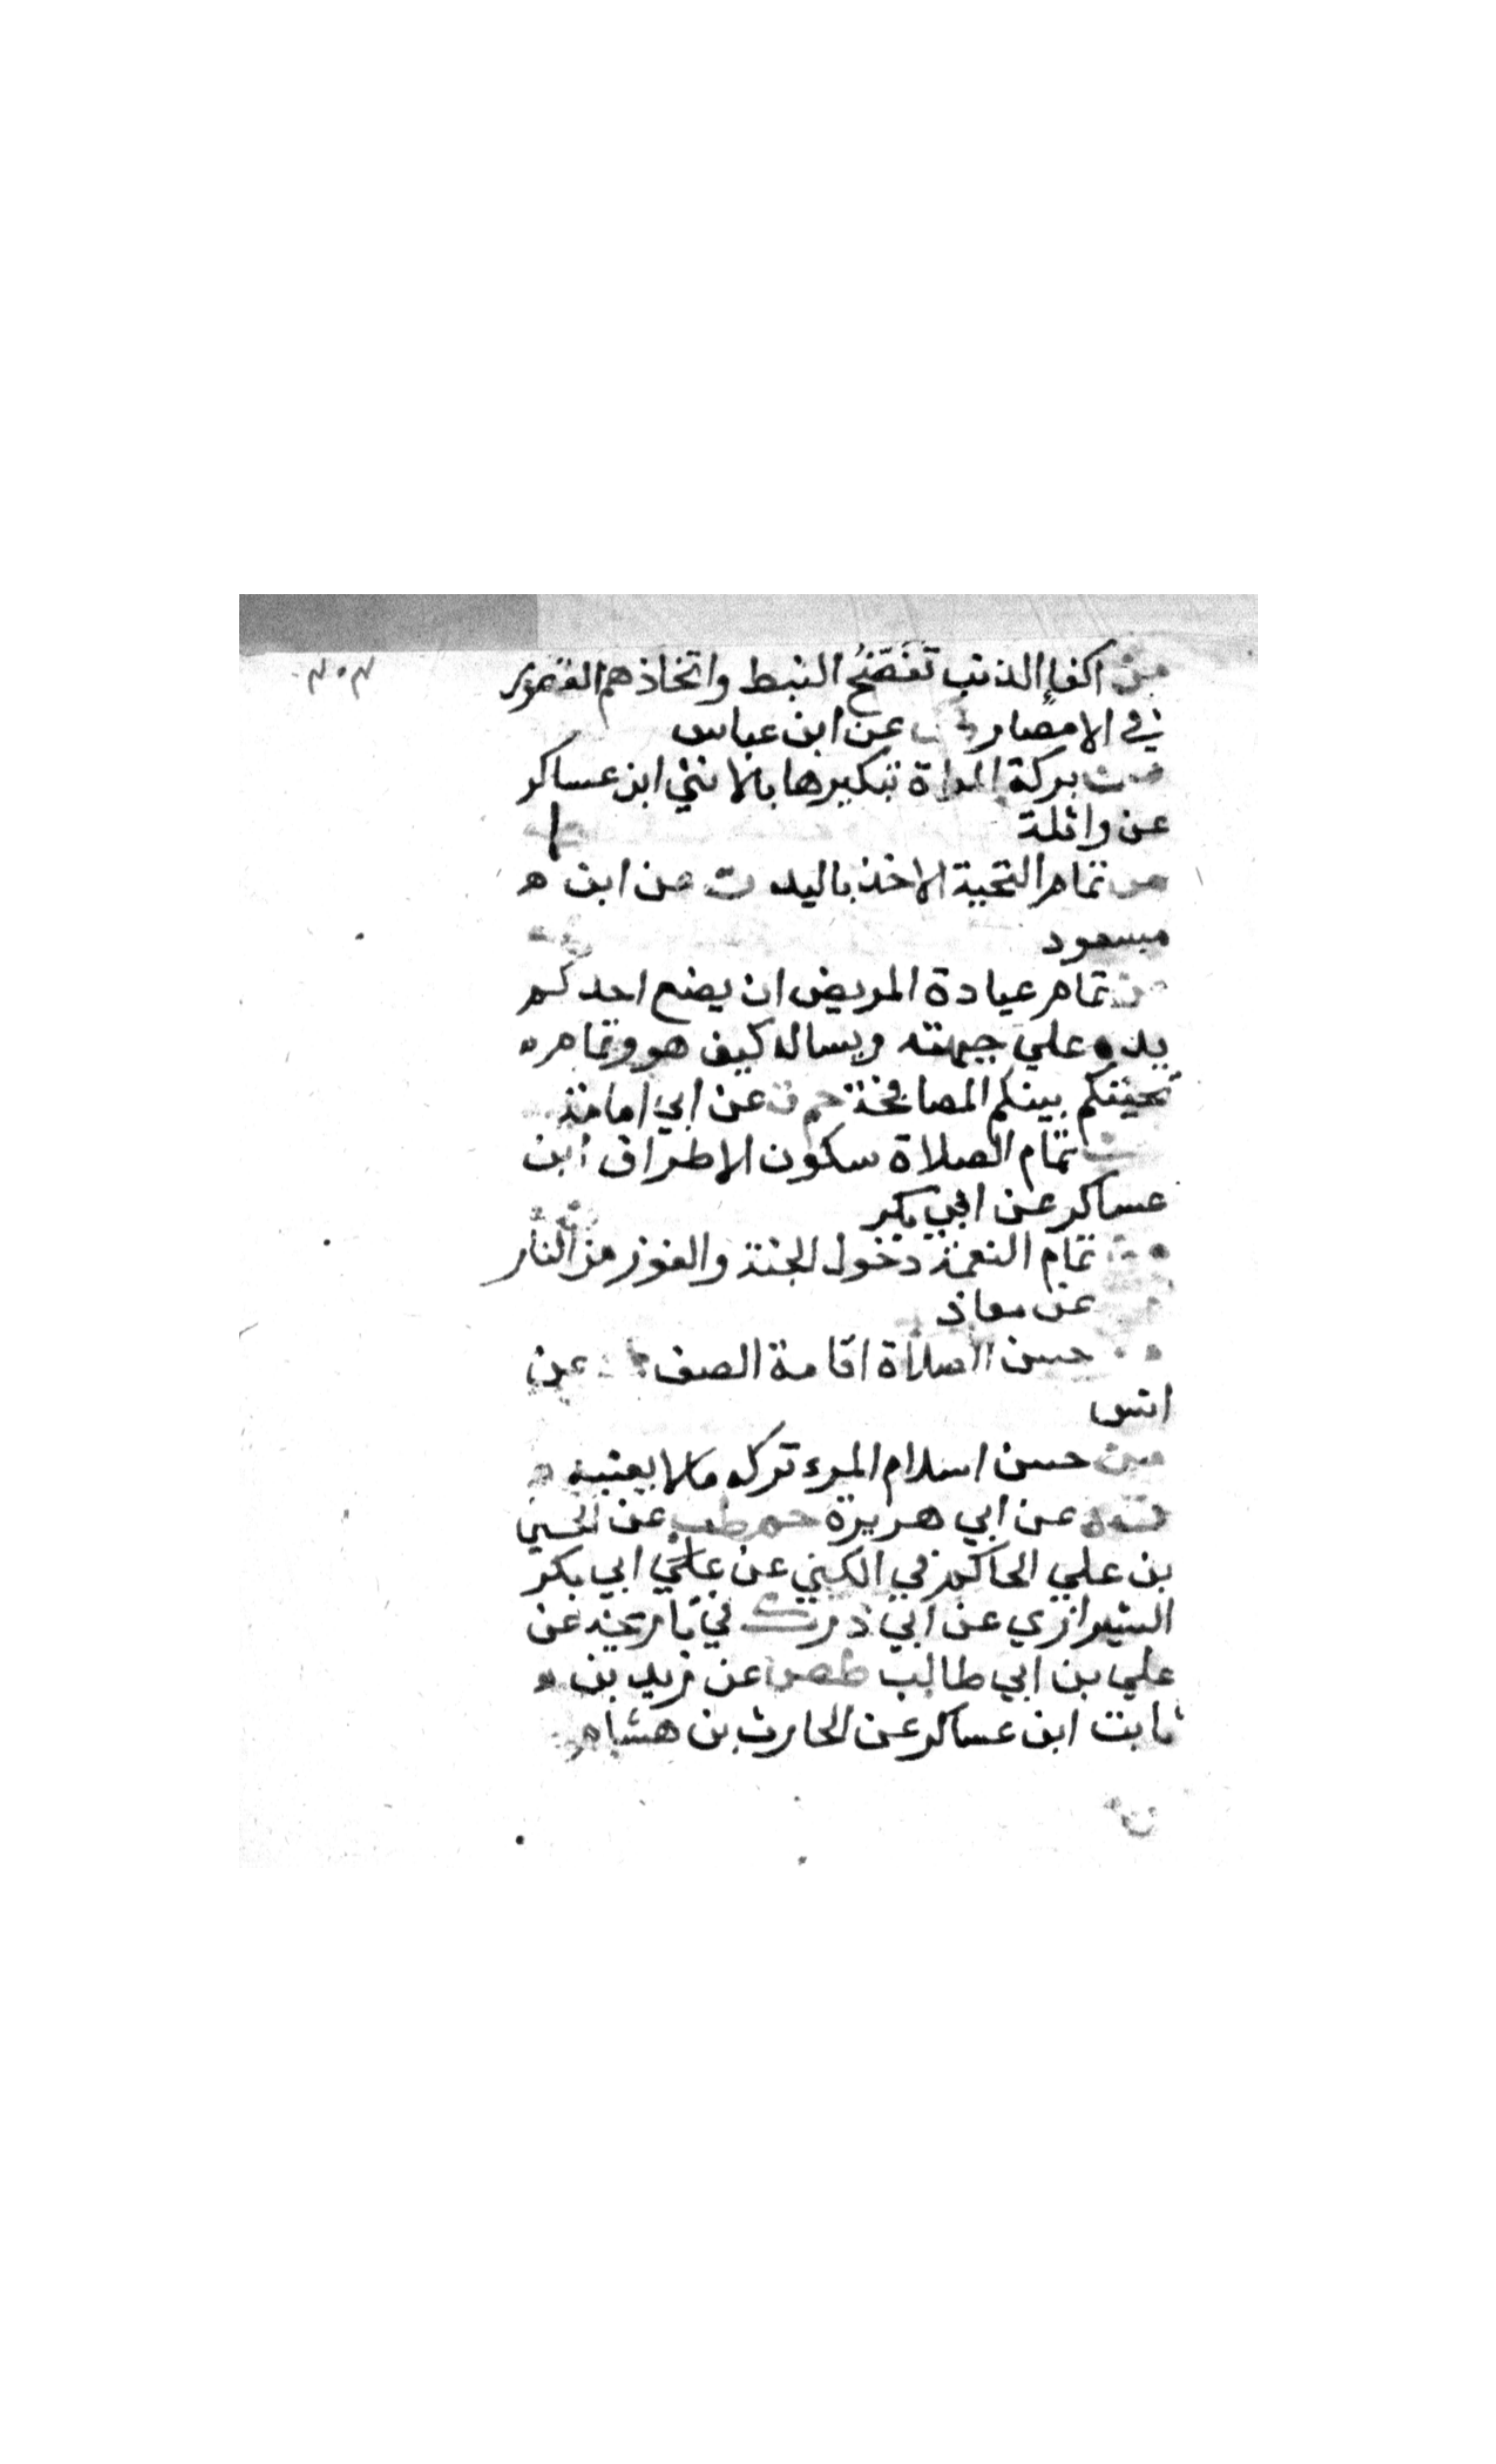 من اكفاء الذنب تَفَصُّحُ النبط واتخاذهم القصور
في الامصار طب عن ابن عباس
من بركة المراة تبكيرها بالانثي ابن عساكر
عن واثلة
من تمام التحية الاخذ باليد ت عن ابن ه
مسعود
من تمام عيادة المريض ان يضع احدكم
يده علي جبهته ويساله كيف هو وتمام
تحيتكم بينكم المصافحة حم ت عن ابي امامة
من تمام الصلاة سكون الاطراف ابن
عساكر عن ابي بكر
من تمام النعمة دخول الجنة والفوز من النار
عن معاذ
حسن الصلاة اقامة الصف عن
انس
من حسن اسلام المرء تركه مالا يعنيه
ت ه عن ابي هريرة حم طب عن الحسين
بن علي الحاكم في الكني عن علي ابي بكر
الشيرازي عن ابي ذر ك في تاريخه عن
علي بن ابي طالب طص عن زيد بن
ثابت ابن عساكر عن الحارث بن هشام